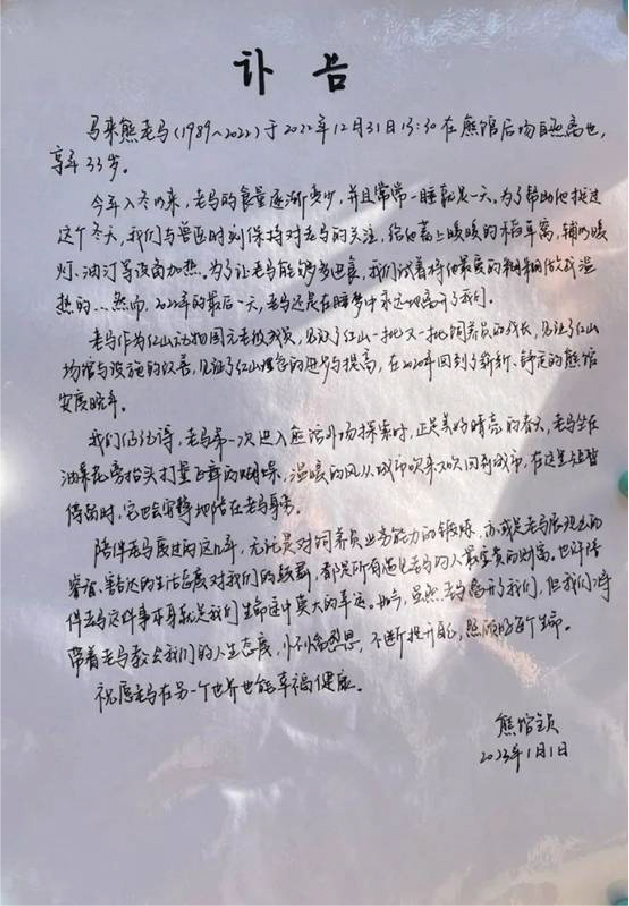 讣告
马来熊老马(1989~2022)于2022年12月31日13:30在熊馆后场自然离世,
享年33岁。
今年入冬以来,老马的食量逐渐变少,并且常常一睡就是一天。为了帮助他挺过
这个冬天,我们与兽医时刻保持对老马的关注,给他蓄上暖暖的稻草窝,辅以暖
灯、油汀等设备加热。为了让老马能够多进食,我们试着将他最爱的粥糊做成温
热的…然而,2022年的最后一天,老马还是在睡梦中永远地离开了我们。
老马作为红山动物园元老级成员,见证了红山一批又一批饲养员的成长,见证了红山
场馆与设施的改善,见证了红山理念的进步与提高,在2020年回到了崭新、舒适的熊馆
安度晚年。
我们仍记得,老马第一次进入愈活外场探索时,正是美好晴亮的春天,老马坐在
油菜花旁抬头打量飞舞的蝴蝶,温暖的风从城市吹来又吹回到城市,在这里短暂
停留时,它也会安静地陪在老马身旁。
陪伴老马度过的这几年,无论是对饲养员业务能力的锻炼,亦或是老马展现出的
睿智、豁达的生活态度对我们的鼓舞,都是所有遇见老马的人最宝贵的财富。也许陪
伴老马这件事本身就是我们生命途中莫大的幸运。如今,虽然老马离开了我们,但我们将
带着老马教会我们的人生态度,怀揣感恩,不断提升自我,照顾好每个生命。
祝愿老马在另一个世界也能幸福健康。
熊馆全员
2023年1月1日